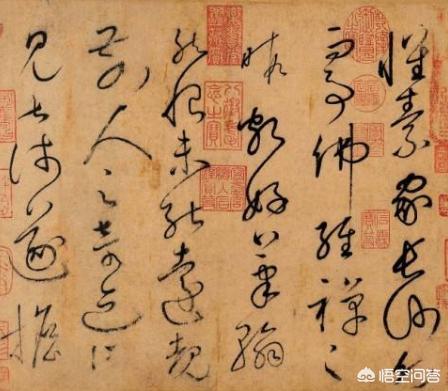 懷素家長沙幼
而事佛經禪之
暇頗好筆翰
然恨未能遠覩
前人之奇迹所
見甚淺遂擔
悟空问答